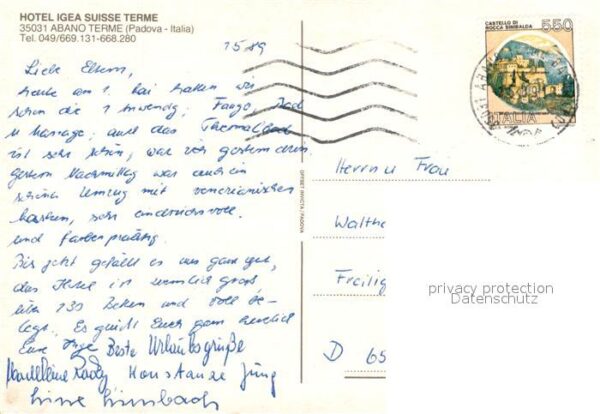 HOTEL IGEA SUISSE TERME
35031 ABANO TERME (Padova - Italia)
Tel. 049/669.131-668.280
1 5 89
Liebe Eltern,
heute am 1. Mai hatten wir
schon die 1. Anwendg; Fango, Bad
u Massage; auch das Thermalbad
ist sehr schön, war vorgestern drin
gestern Nachmittag war auch ein
schöner Umzug mit venezianischen
Masken, sehr eindrucksvoll
und farbenprächtig.
Bis jetzt gefällt es uns ganz gut,
das Hotel ist ziemlich groß,
über 130 Betten und voll be-
legt. Es grüßt Euch ganz herzlich
Eure Inge Beste Urlaubsgrüße
Konstanze Jung
OFFSET INVICTA / PADOVA
CASTELLO DI
ROCCA SINIBALDA
550
ITALIA
Herrn u Frau
Walthe
Freilig
D 65
privacy protection
Datenschutz